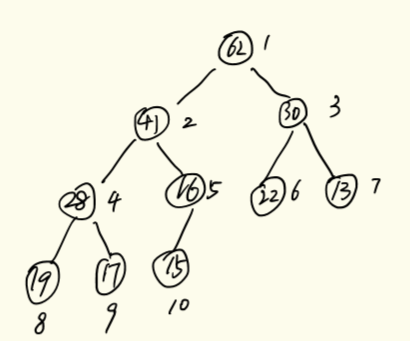 62 1
41 2 30 3
28 4 16 5 22 6 13 7
19 17 15
8 9 10